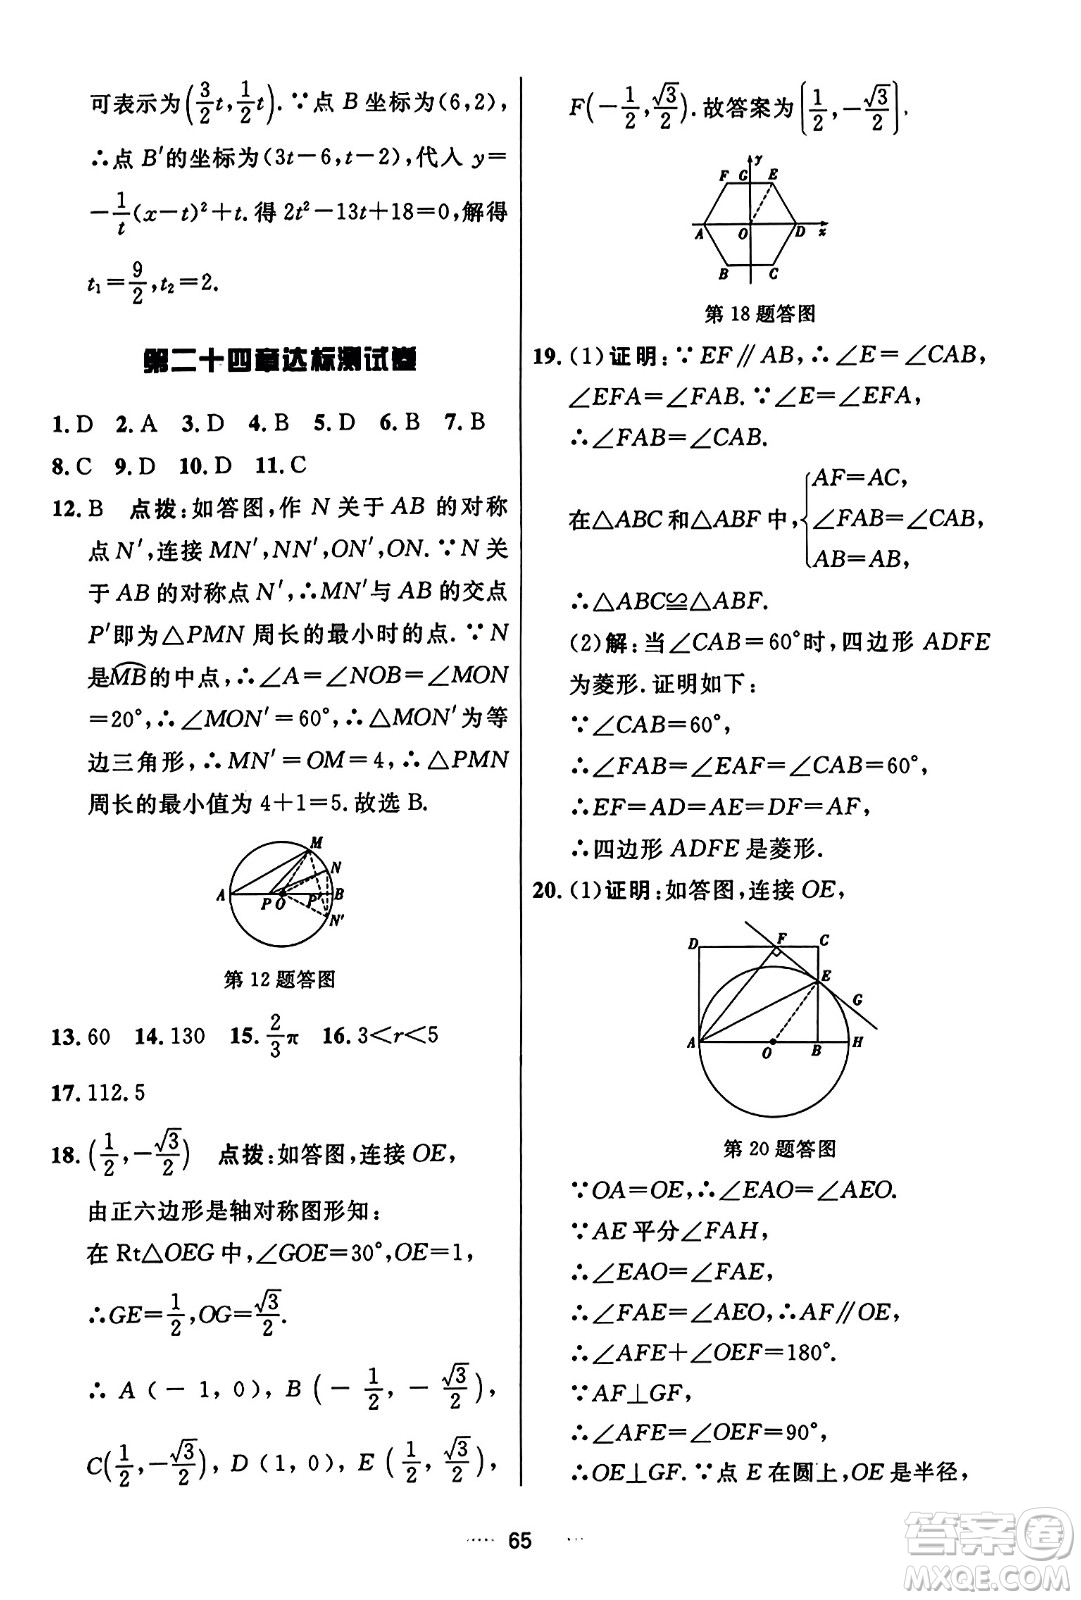 可表示为(3/2 t, 1/2 t).∵点 B 坐标为(6,2),
∴点 B′的坐标为(3t-6,t-2),代入 y=
-1/t(x-t)²+t.得 2t²-13t+18=0,解得
t₁=9/2,t₂=2.
第二十四章达标测试卷
1.D 2.A 3.D 4.B 5.D 6.B 7.B
8.C 9.D 10.D 11.C
12.B 点拨:如答图,作 N 关于 AB 的对称
点 N′,连接 MN′,NN′,ON′,ON.∵N 关
于 AB 的对称点 N′,∴MN′与 AB 的交点
P′即为△PMN 周长的最小时的点.∵N
是MB的中点,∴∠A=∠NOB=∠MON
=20°,∴∠MON′=60°,∴△MON′为等
边三角形,∴MN′=OM=4,∴△PMN
周长的最小值为 4+1=5.故选 B.
M
N
A P O P′ B
N′
第 12 题答图
13.60 14.130 15.2/3 π 16.3<r<5
17.112.5
18.(1/2,-√3/2) 点拨:如答图,连接 OE,
由正六边形是轴对称图形知:
在 Rt△OEG 中,∠GOE=30°,OE=1,
∴GE=1/2,OG=√3/2.
∴A(-1,0),B(-1/2,-√3/2),
C(1/2,-√3/2),D(1,0),E(1/2,√3/2),
F(-1/2,√3/2).故答案为(1/2,-√3/2).
y
F G E
A O D x
B C
第 18 题答图
19.(1)证明:∵EF∥AB,∴∠E=∠CAB,
∠EFA=∠FAB.∵∠E=∠EFA,
∴∠FAB=∠CAB.
AF=AC,
在△ABC 和△ABF 中,{∠FAB=∠CAB,
AB=AB,
∴△ABC≌△ABF.
(2)解:当∠CAB=60°时,四边形 ADFE
为菱形.证明如下:
∵∠CAB=60°,
∴∠FAB=∠EAF=∠CAB=60°,
∴EF=AD=AE=DF=AF,
∴四边形 ADFE 是菱形.
20.(1)证明:如答图,连接 OE,
D F C
E
G
A O B H
第 20 题答图
∵OA=OE,∴∠EAO=∠AEO.
∵AE 平分∠FAH,
∴∠EAO=∠FAE,
∴∠FAE=∠AEO,∴AF∥OE,
∴∠AFE+∠OEF=180°.
∵AF⊥GF,
∴∠AFE=∠OEF=90°,
∴OE⊥GF.∵点 E 在圆上,OE 是半径,
65
答案圈
MXQE.COM